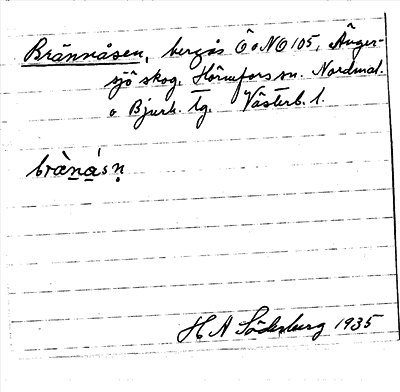 Brännåsen, bergås Ö o NO 105, Ånger-
sjö skog. Hörnefors sn. Nordmal.
o Bjurh. tg. Västerb. l.
brànási̥n
H A Söderberg 1935